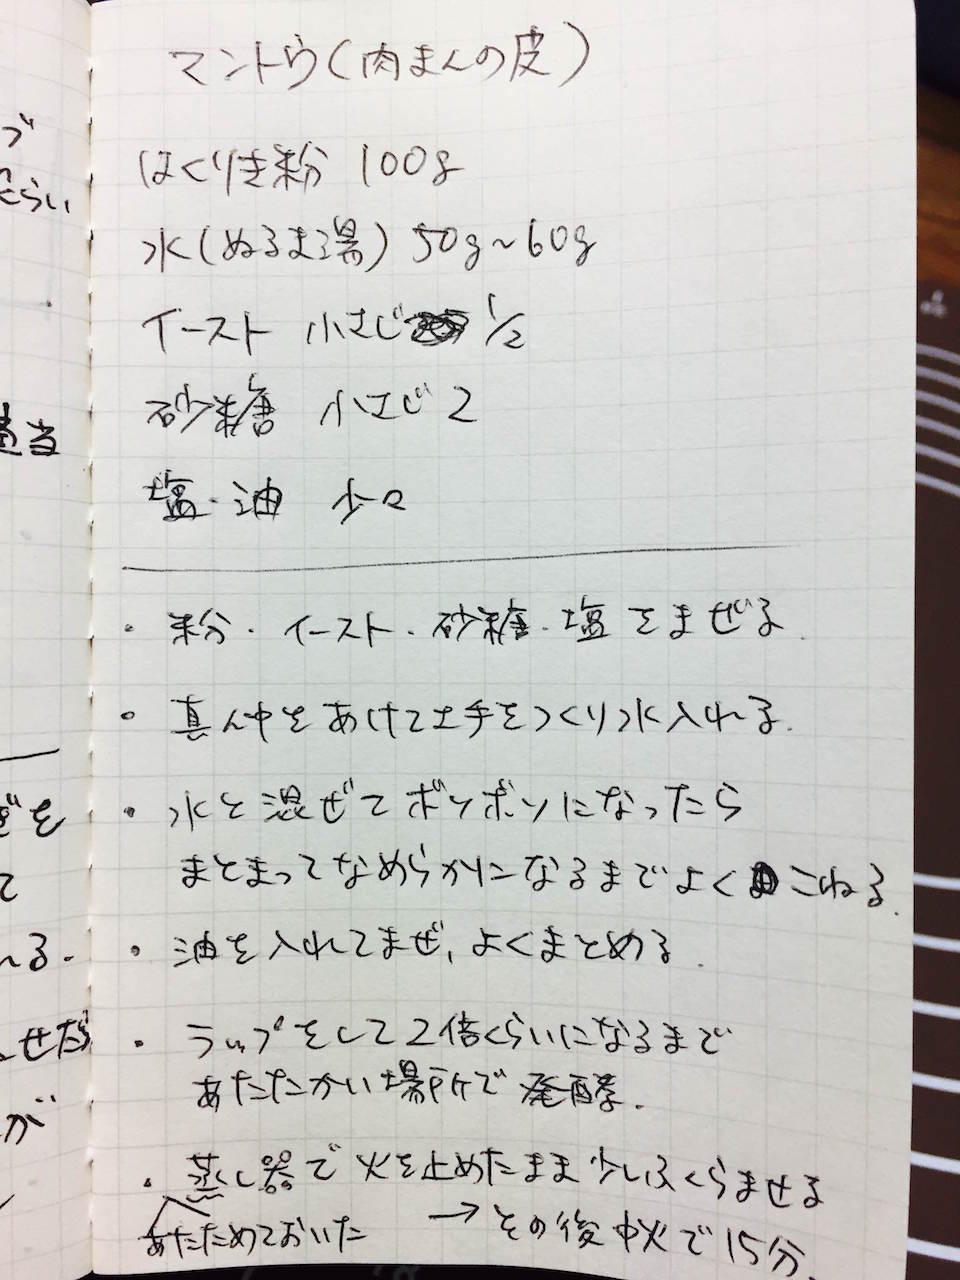 マントウ(肉まんの皮)
はくりき粉 100g
水(ぬるま湯) 50g~60g
イースト 小さじ 1/2
砂糖 小さじ2
塩・油 少々
・粉・イースト・砂糖・塩をまぜる.
・真ん中をあけて土手をつくり水入れる.
・水と混ぜてボソボソになったら
まとまってなめらかになるまでよくこねる.
・油を入れてまぜ,よくまとめる.
・ラップをして2倍くらいになるまで
あたたかい場所で発酵.
・蒸し器で火を止めたまま少しふくらませる
あたためておいた →その後中火で15分.
ブ
くらい
適当
ぎを
て
れる.
せたら
が